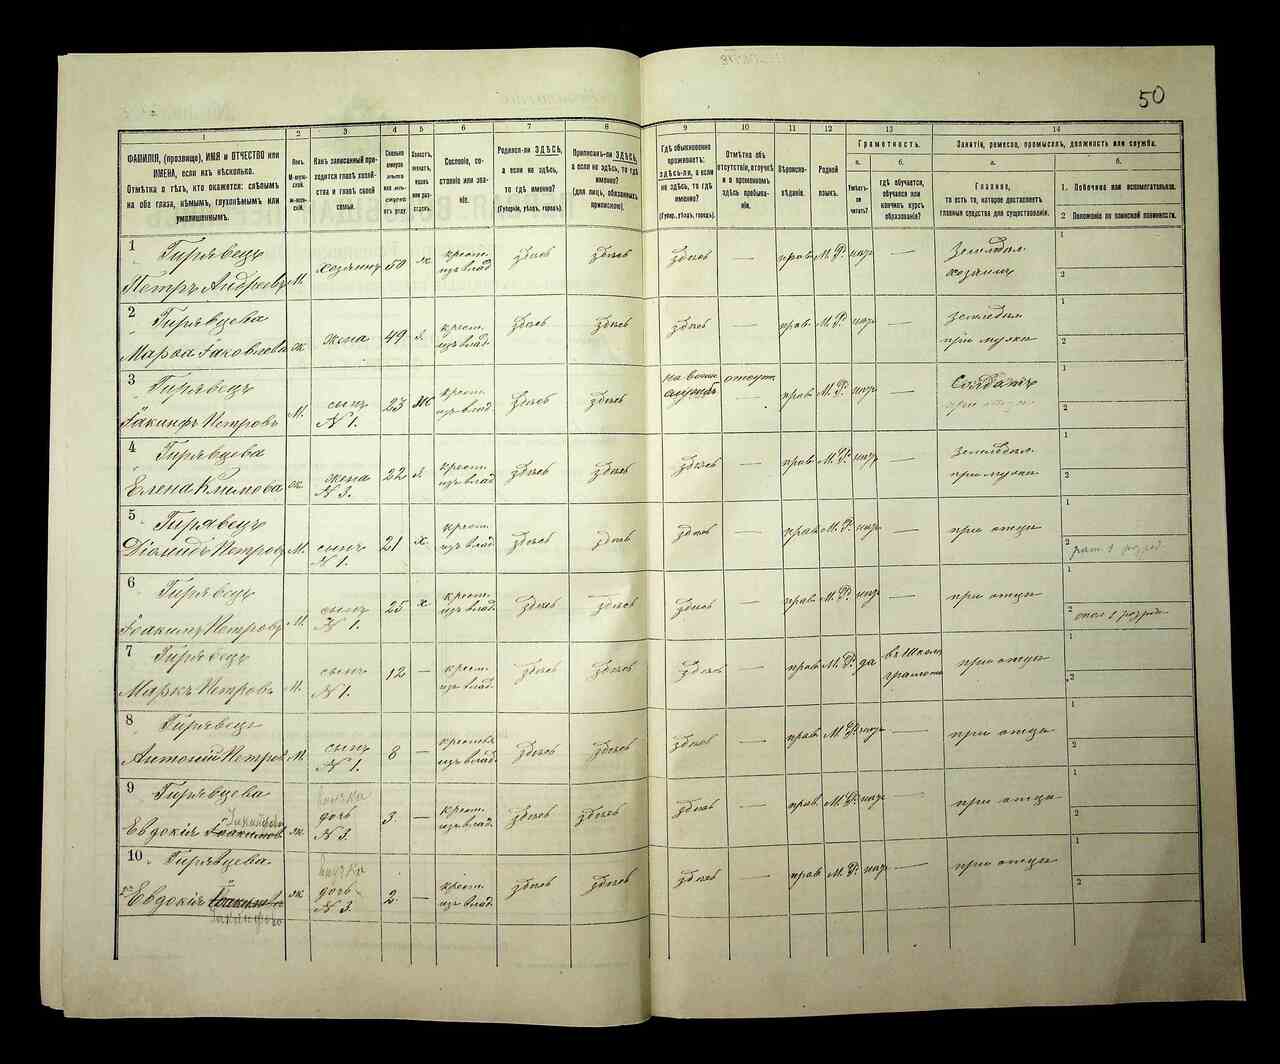 50
1
2
3
4
5
6
7
8
9
10
11
12
13
14
ФАМИЛІЯ, (прозвище), ИМЯ и ОТЧЕСТВО или
ИМЕНА, если ихъ нѣсколько.
Отмѣтка о тѣхъ, кто окажется: слѣпымъ
на оба глаза, нѣмымъ, глухонѣмымъ или
умалишеннымъ.
Полъ.
М-мужской.
Ж-женскій.
Какъ записанный приходится главѣ хозяйства и главѣ своей
семьи.
Сословіе, состояніе или званіе.
Родился-ли ЗДѢСЬ,
а если не здѣсь,
то гдѣ именно?
(Губернія, уѣздъ, городъ).
Приписанъ-ли ЗДѢСЬ,
а если не здѣсь, то гдѣ
именно?
(для лицъ, обязанныхъ
припискою).
Гдѣ обыкновенно
проживаетъ:
ЗДѢСЬ-ли, а если
не здѣсь, то гдѣ
именно?
(Губер., уѣздъ, городъ).
Отмѣтка объ
отсутствіи, отлучкѣ
и о временномъ
здѣсь пребываніи.
Вѣроисповѣданіе.
Родной
языкъ.
Грамотность.
а.
Умѣетъ-ли
читать?
б.
гдѣ обучается,
обучался или
кончилъ курсъ
образованія?
Занятіе, ремесло, промыселъ, должность или служба.
а.
Главное,
то есть то, которое доставляетъ
главныя средства для существованія.
б.
1. Побочное или вспомогательное.
2 Положеніе по воинской повинности.
1
Гирявецъ
Петръ Андреевъ М. хозяинъ 50 ж. крест. изъ влад. здѣсь здѣсь здѣсь — прав. М.Р. нѣт — Земледѣл. хозяинъ
2
Гирявцева
Марѳа Іаковлева ж жена 49 з. крест. изъ влад. здѣсь здѣсь здѣсь — прав. М.Р. нѣт — Земледѣл. при мужѣ
3
Гирявецъ
Іакинфъ Петровъ М. сынъ N 1. 23 ж крест. изъ влад. здѣсь здѣсь на воин. службѣ отсут. прав. М.Р. нѣт — Солдатъ при отцѣ
4
Гирявцева
Елена Климова ж жена N 3. 22 з. крест. изъ влад. здѣсь здѣсь здѣсь — прав. М.Р. нѣт — Земледѣл. при мужѣ
5
Гирявецъ
Діомидъ Петровъ М. сынъ N 1. 21 х. крест. изъ влад. здѣсь здѣсь здѣсь — прав. М.Р. нѣт — при отцѣ
рат. 1 разряд.
6
Гирявецъ
Іоакимъ Петровъ М. сынъ N 1. 25 х крест. изъ влад. здѣсь здѣсь здѣсь — прав. М.Р. нѣт — при отцѣ
опол 1 розряда
7
Гирявецъ
Маркъ Петровъ М. сынъ N 1. 12 — крест. изъ влад. здѣсь здѣсь здѣсь — прав. М.Р. да въ школ. грамоты при отцѣ
8
Гирявецъ
Антоній Петров М. сынъ N 1. 8 — крестьян изъ влад. здѣсь здѣсь здѣсь — прав. М.Р. нѣт — при отцѣ
9
Гирявцева внучка
Евдокія Іоакимов. ж. дочь N 3. 3. — крест. изъ влад. здѣсь здѣсь здѣсь — прав. М.Р. нѣт — при отцѣ
10
Гирявцева внучка
Евдокія ж дочь N 3. 2. — крест. изъ влад. здѣсь здѣсь здѣсь — прав. М.Р. нѣт — при отцѣ
Іакинфова